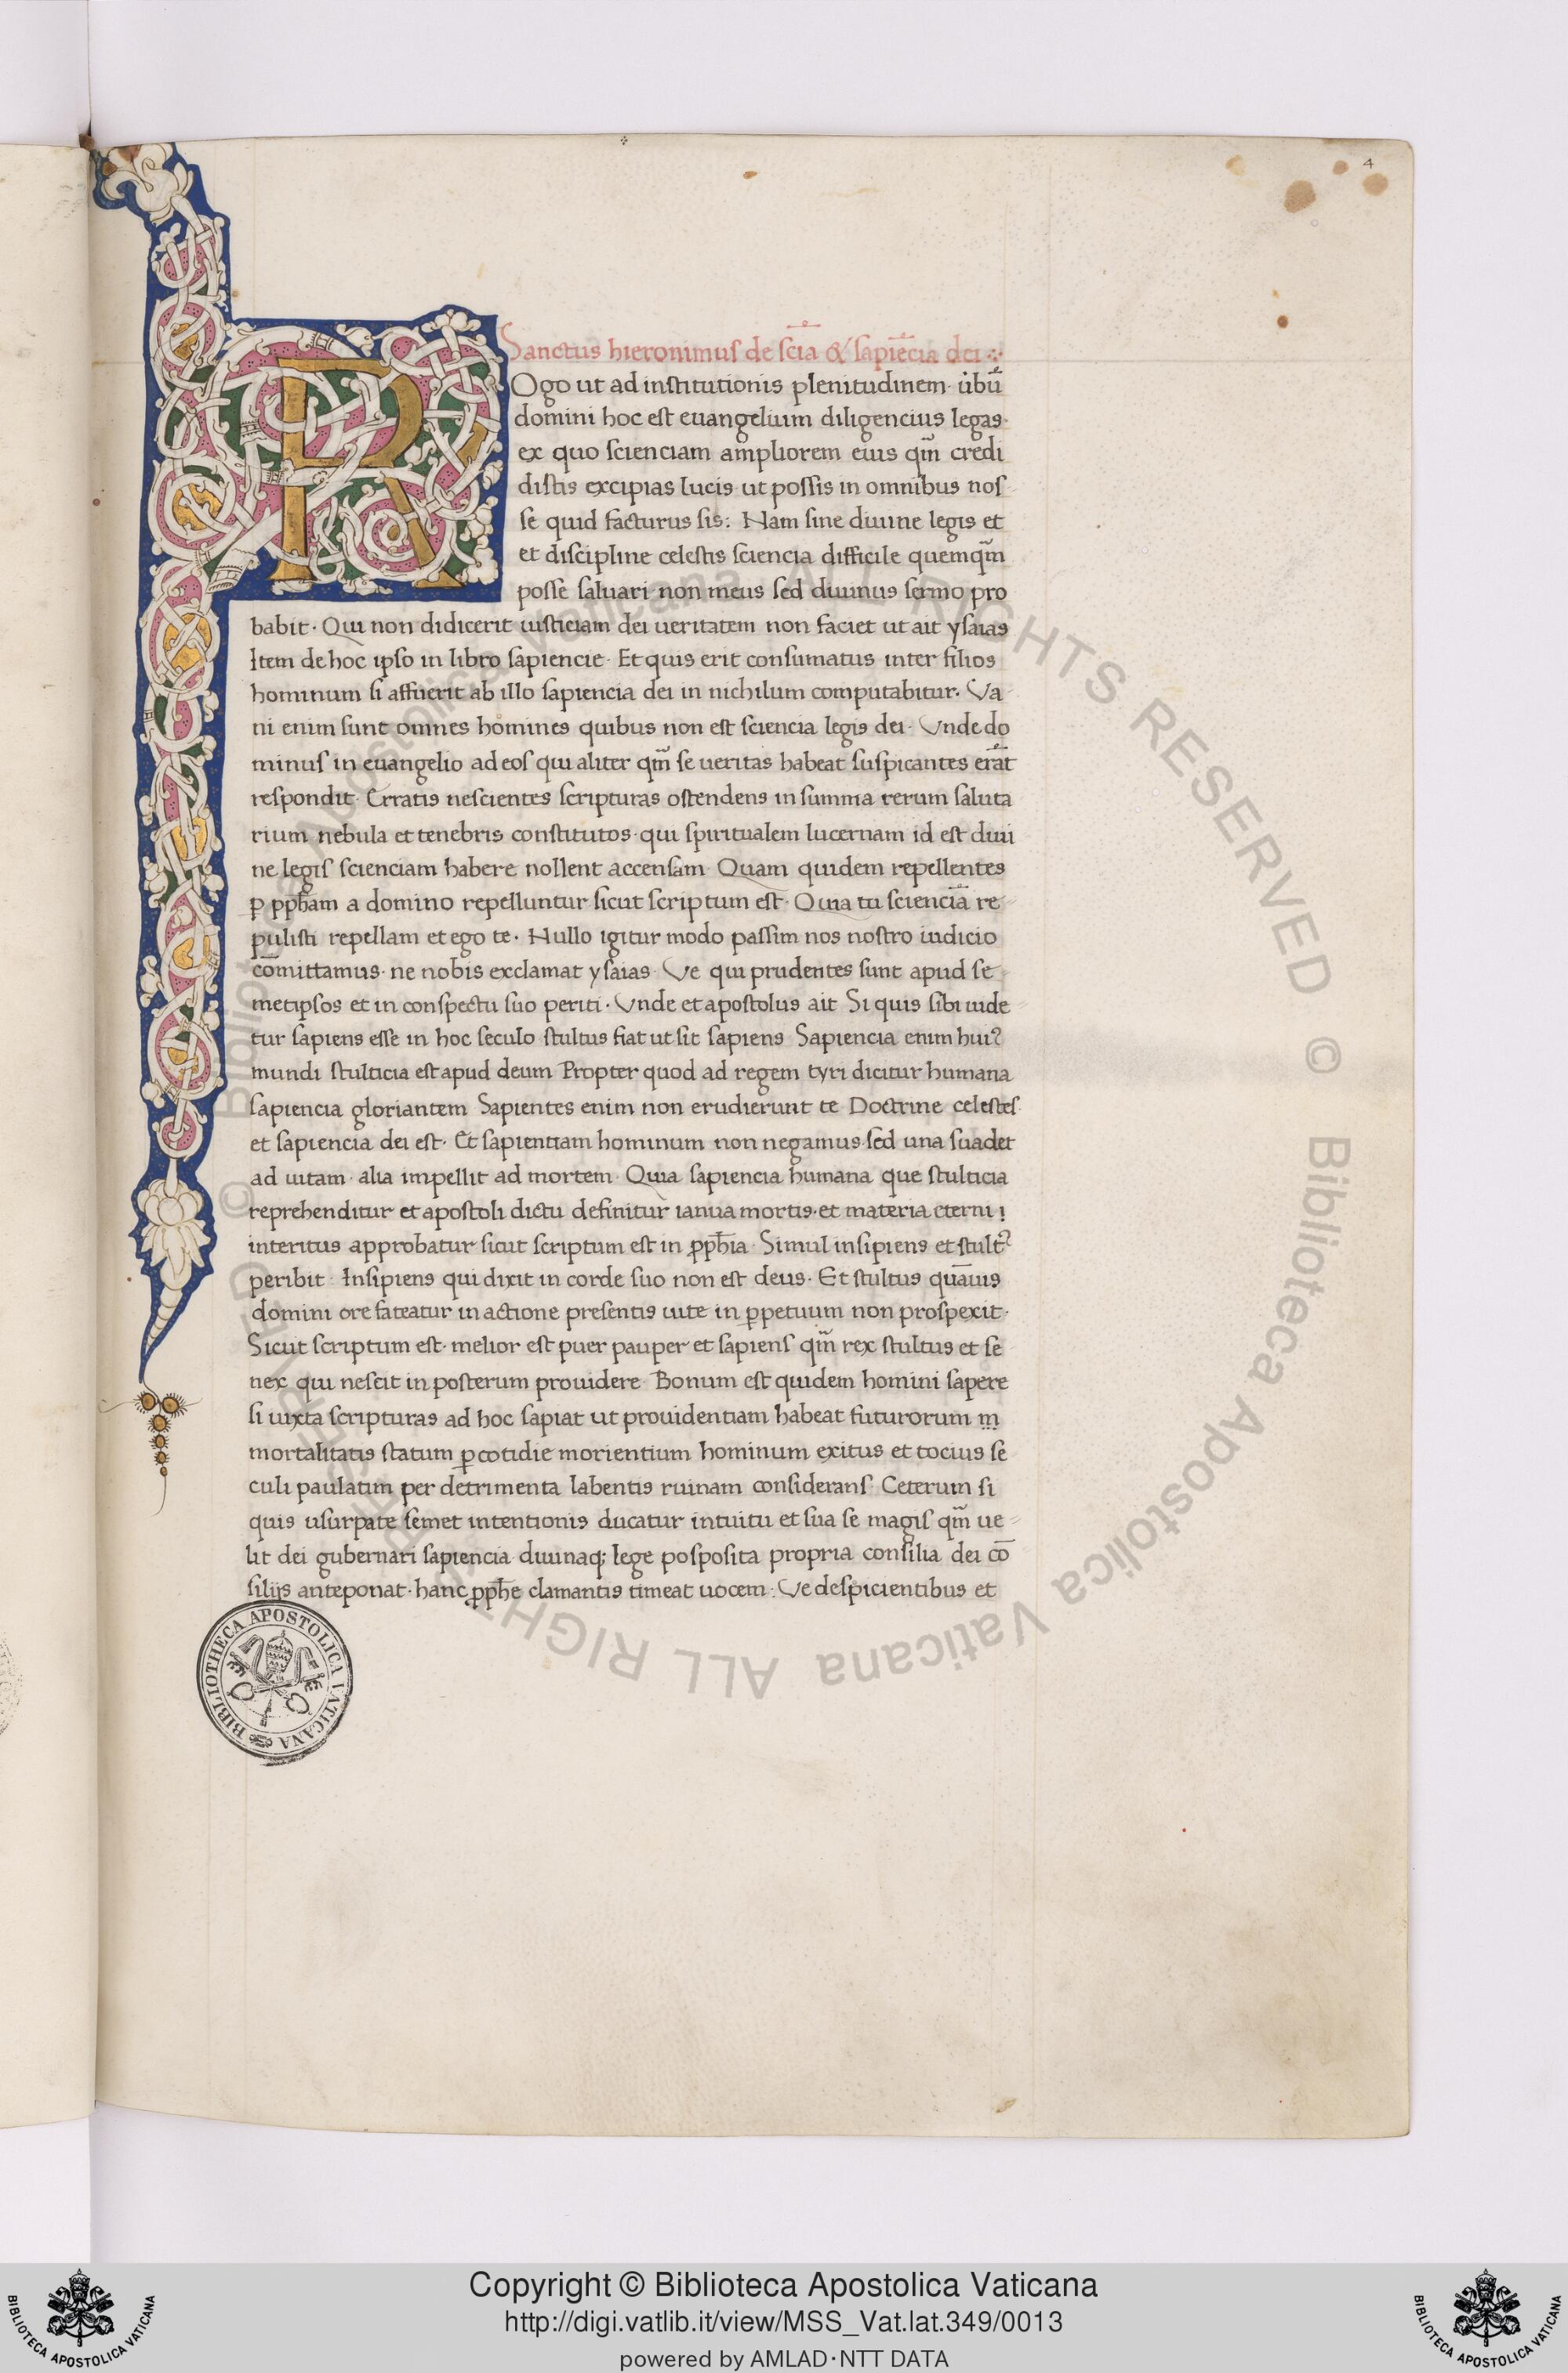 4
Sanctus hieronimus de sc̄ia & sapiēcia dei
ROgo ut ad institutionis plenitudinem · u̇bū
domini hoc est euangelium diligencius legas·
ex quo scienciam ampliorem eius qm̄ credi
distis excipias lucis ut possis in omnibus nos
se quid facturus sis: Nam sine diuine legis et
et discipline celestis sciencia difficile quemqm̄
posse saluari non meus sed diuinus sermo pro
babit · Qui non didicerit iusticiam dei ueritatem non faciet ut ait ysaias
Item de hoc ipso in libro sapiencie · Et quis erit consumatus inter filios
hominum si affuerit ab illo sapiencia dei in nichilum computabitur · Va
ni enim sunt omnes homines quibus non est sciencia legis dei · Vnde do
minus in euangelio ad eos qui aliter qm̄ se ueritas habeat suspicantes erāt
respondit · Erratis nescientes scripturas ostendens in summa rerum saluta
rium nebula et tenebris constitutos · qui spiritualem lucernam id est diui
ne legis scienciam habere nollent accensam · Quam quidem repellentes
ꝑ ꝓph̄am a domino repelluntur sicut scriptum est · Quia tu scienciā re
pulisti repellam et ego te · Nullo igitur modo passim nos nostro iudicio
cōmittamus · ne nobis exclamat ysaias · Ve qui prudentes sunt apud se
metipsos et in conspectu suo periti · Vnde et apostolus ait Si quis sibi uide
tur sapiens esse in hoc seculo stultus fiat ut sit sapiens Sapiencia enim huiꝰ
mundi stulticia est apud deum Propter quod ad regem tyri dicitur humana
sapiencia gloriantem Sapientes enim non erudierunt te Doctrine celestes
et sapiencia dei est · Et sapientiam hominum non negamus · sed una suadet
ad uitam · alia impellit ad mortem · Quia sapiencia humana que stulticia
reprehenditur et apostoli dictu definitur ianua mortis · et materia eterni
interitus approbatur sicut scriptum est in ꝓph̄ia · Simul insipiens et stultꝰ
peribit · Insipiens qui dixit in corde suo non est deus · Et stultus quāuis
domini ore fateatur in actione presentis uite in ꝑpetuum non prospexit ·
Sicut scriptum est · melior est puer pauper et sapiens qm̄ rex stultus et se
nex qui nescit in posterum prouidere · Bonum est quidem homini sapere
si iuxta scripturas ad hoc sapiat ut prouidentiam habeat futurorum m
mortalitatis statum ꝑ cotidie morientium hominum exitus et tocius se
culi paulatim per detrimenta labentis ruinam considerans · Ceterum si
quis usurpate semet intentionis ducatur intuitu et sua se magis qm̄ ue
lit dei gubernari sapiencia diuinaq; lege posposita propria consilia dei cō
silijs anteponat · hanc ꝓph̄e clamantis timeat uocem : Ve despicientibus et
BIBLIOTHECA APOSTOLICA VATICANA
© Biblioteca Apostolica Vaticana ALL RIGHTS RESERVED © Biblioteca Apostolica Vaticana ALL RIGHTS RESERVED
Copyright © Biblioteca Apostolica Vaticana
http://digi.vatlib.it/view/MSS_Vat.lat.349/0013
powered by AMLAD·NTT DATA
BIBLIOTECA APOSTOLICA VATICANA
BIBLIOTECA APOSTOLICA VATICANA